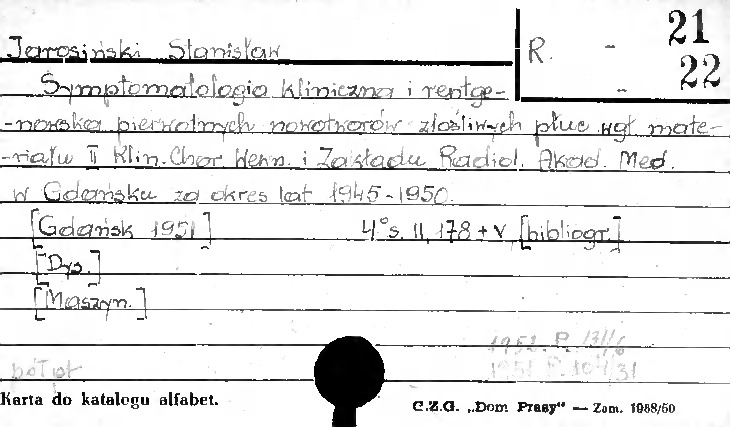 Jarosiński Stanisław R. - 21
22
Symptomatologia kliniczna i rentge-
-nowska pierwotnych nowotworów złośliwych płuc wgł mate-
-riału II Klin. Chor. Wewn. i Zakładu Radiol. Akad. Med.
w Gdańsku za okres lat 1945-1950.
[Gdańsk 1951] 4° s. II, 178 + V, [bibliogr.]
[Dys.]
[Maszyn.]
1952. P.
półpł 1951 P.
Karta do katalogu alfabet. C.Z.G. „Dom Prasy" — Zam. 1088/50